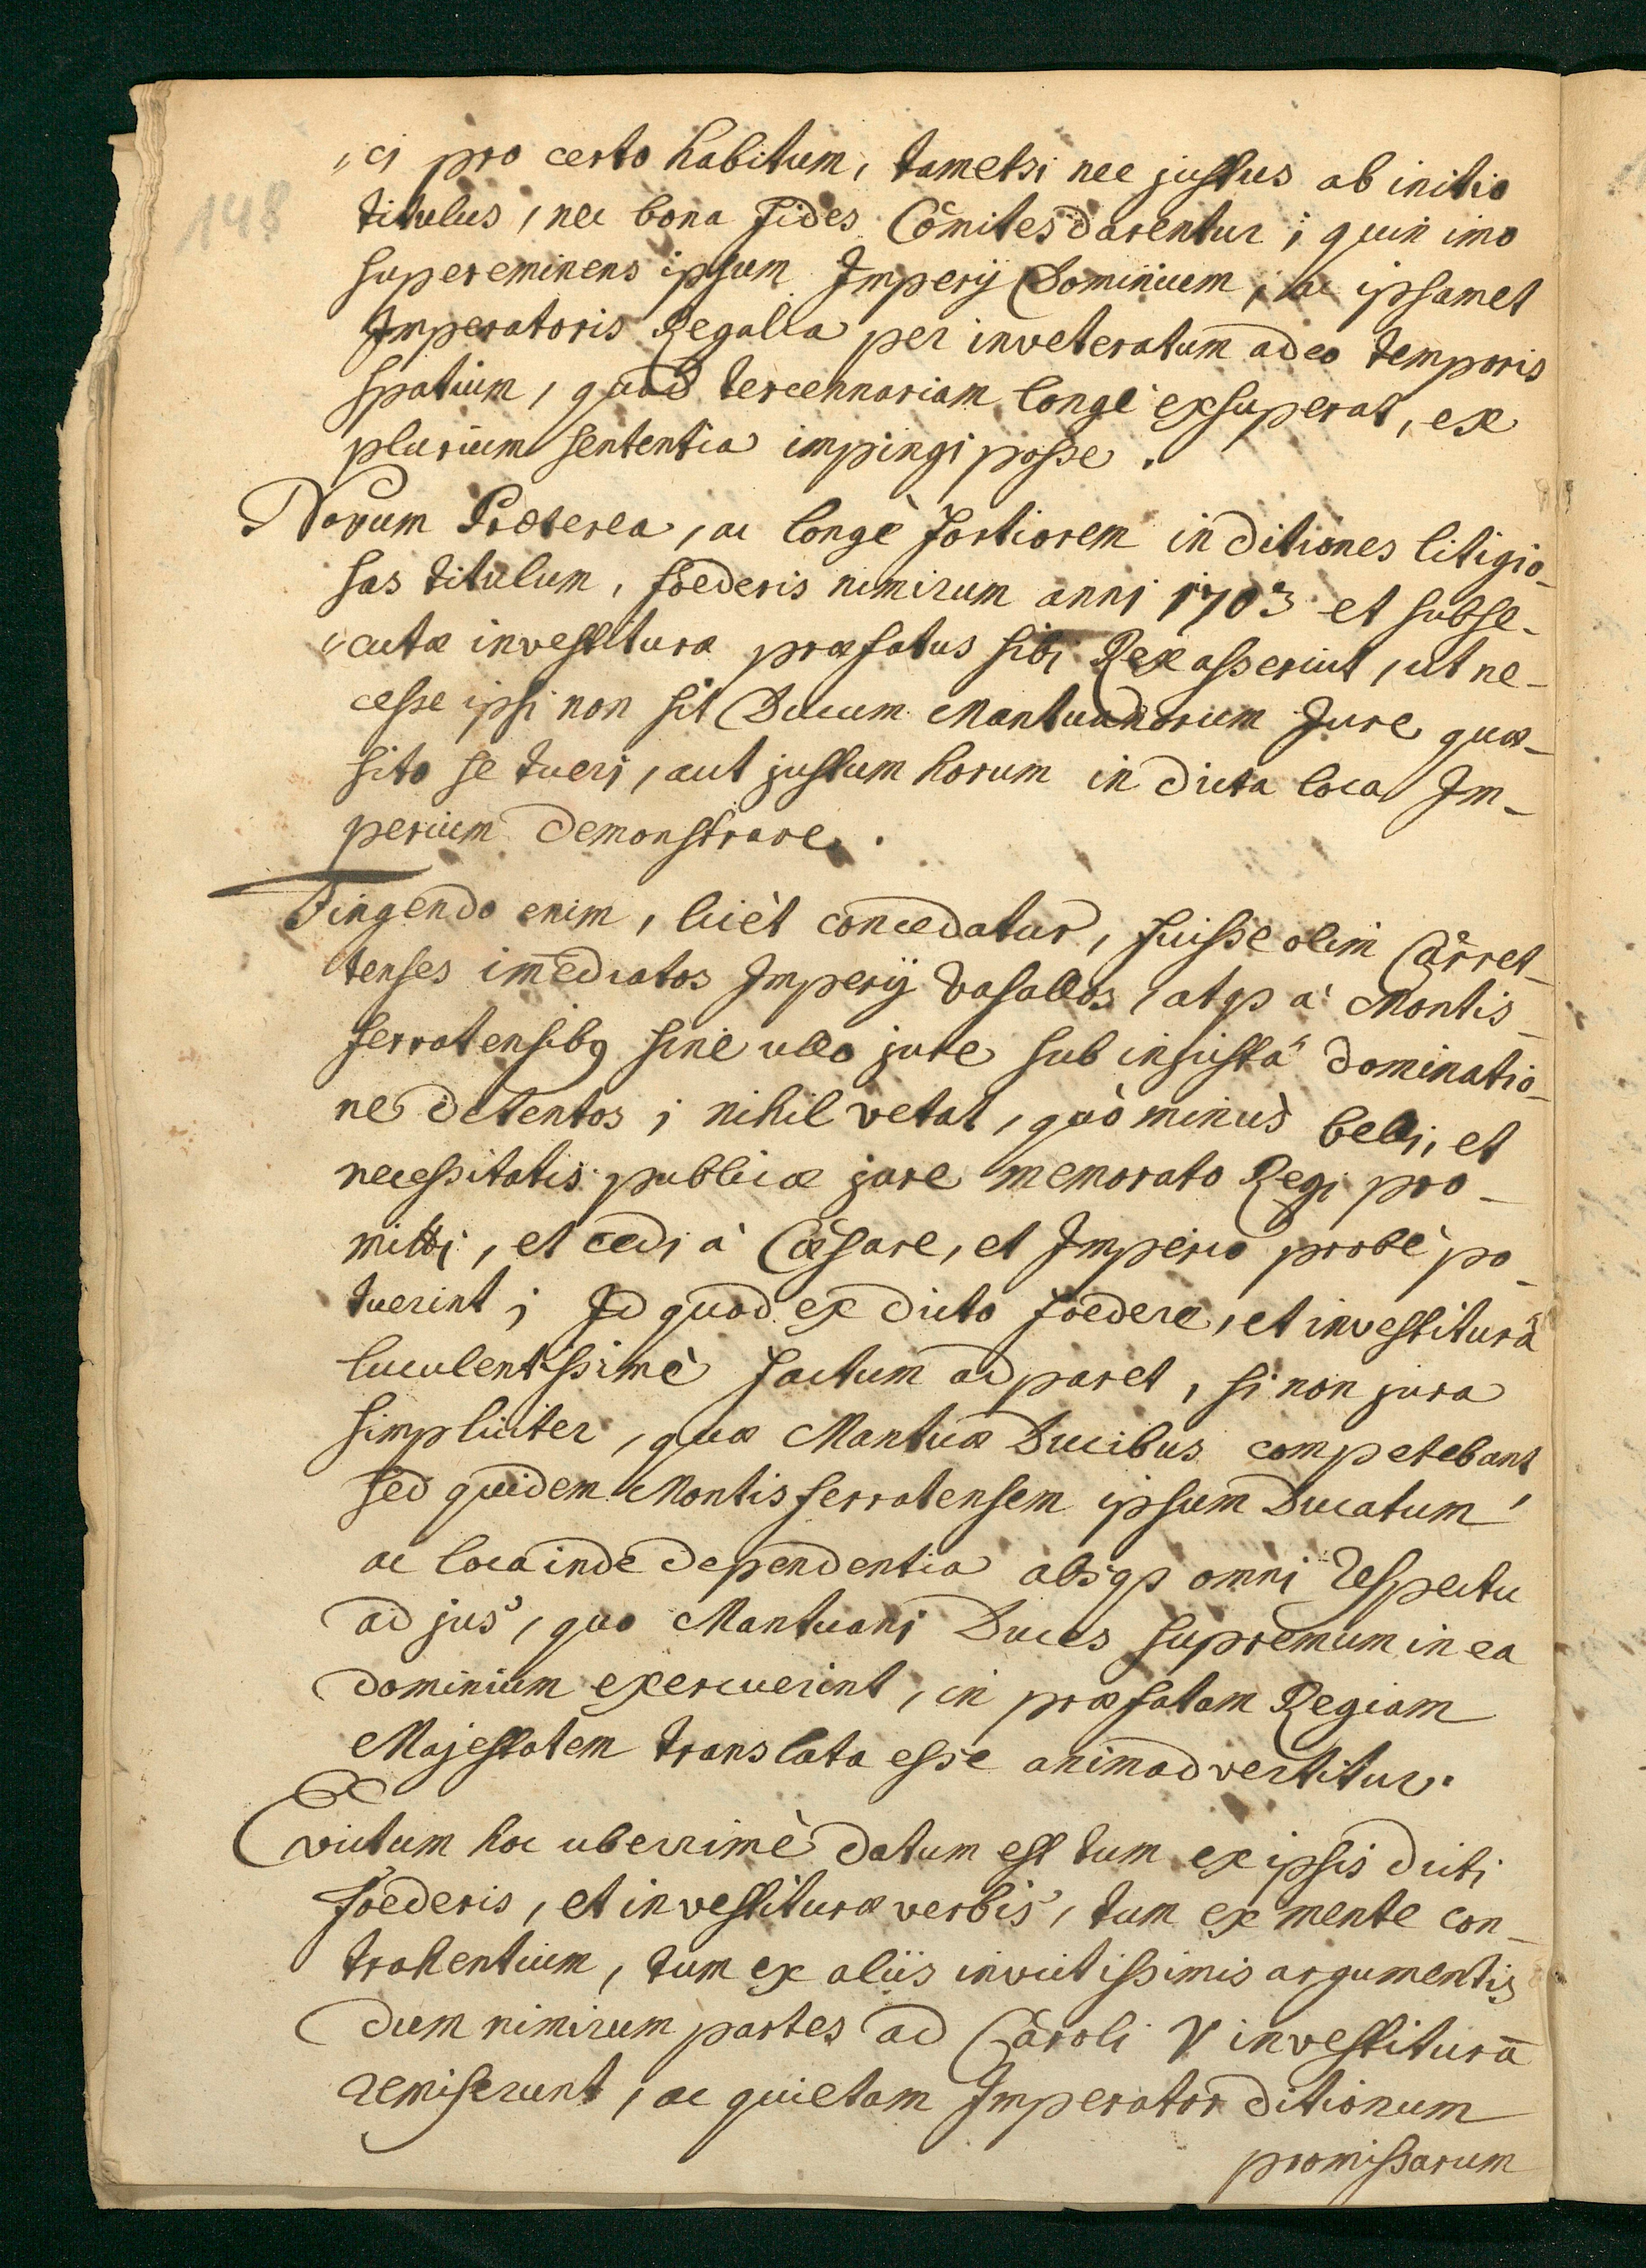 148
„ci pro certo habitum, tametsi nec justus ab initio
titulus, nec bona fides Comites darentur; quin imo
supereminens ipsum Imperij Dominium, ac ipsamet
Imperatoris Regalia per inveteratum adeo temporis
spatium, quod tercennariam longè exsuperat, ex
plurium sententia impingi posse.
Novum Præterea, ac longè fortiorem in ditiones litigio-
sas titulum, foederis nimirum anni 1703 et subse-
„cutæ investituræ præfatus sibi Rex asseruit, ut ne-
cesse ipsi non sit Ducum Mantuanorum Jure quæ-
sito se tueri, aut justum horum in dicta loca Im-
perium demonstrare.
Fingendo enim, licèt concedatur, fuisse olim Carret-
tenses im̄ediatos Imperij vasallos, atqꝫ à Montis-
ferratensibꝰ sine ullo jure sub injustâ dominatio-
ne detentos; nihil vetat, quò minùs belli, et
necessitatis publicæ jure memorato Regi pro-
mitti, et cedi à Cæsare, et Imperio probè po-
tuerint; Id quod ex dicto foedere, et investiturâ
luculentissimè factum adparet, si non jura
simpliciter, quæ Mantuæ Ducibus competebant
sed quidem Montisferratensem ipsum Ducatum,
ac loca inde dependentia absqꝫ omni respectu
ad jus, quo Mantuani Duces supremum in ea
dominium exercuerint, in præfatam Regiam
Majestatem translata esse animadvertitur.
Evictum hoc uberrimè datum est tum ex ipsis dicti
foederis, et investituræ verbis, tum ex mente con-
trahentium, tum ex aliis invictissimis argumentis
dum nimirum partes ad Caroli V investiturā
remiserunt, ac quietam Imperator ditionum
promissarum